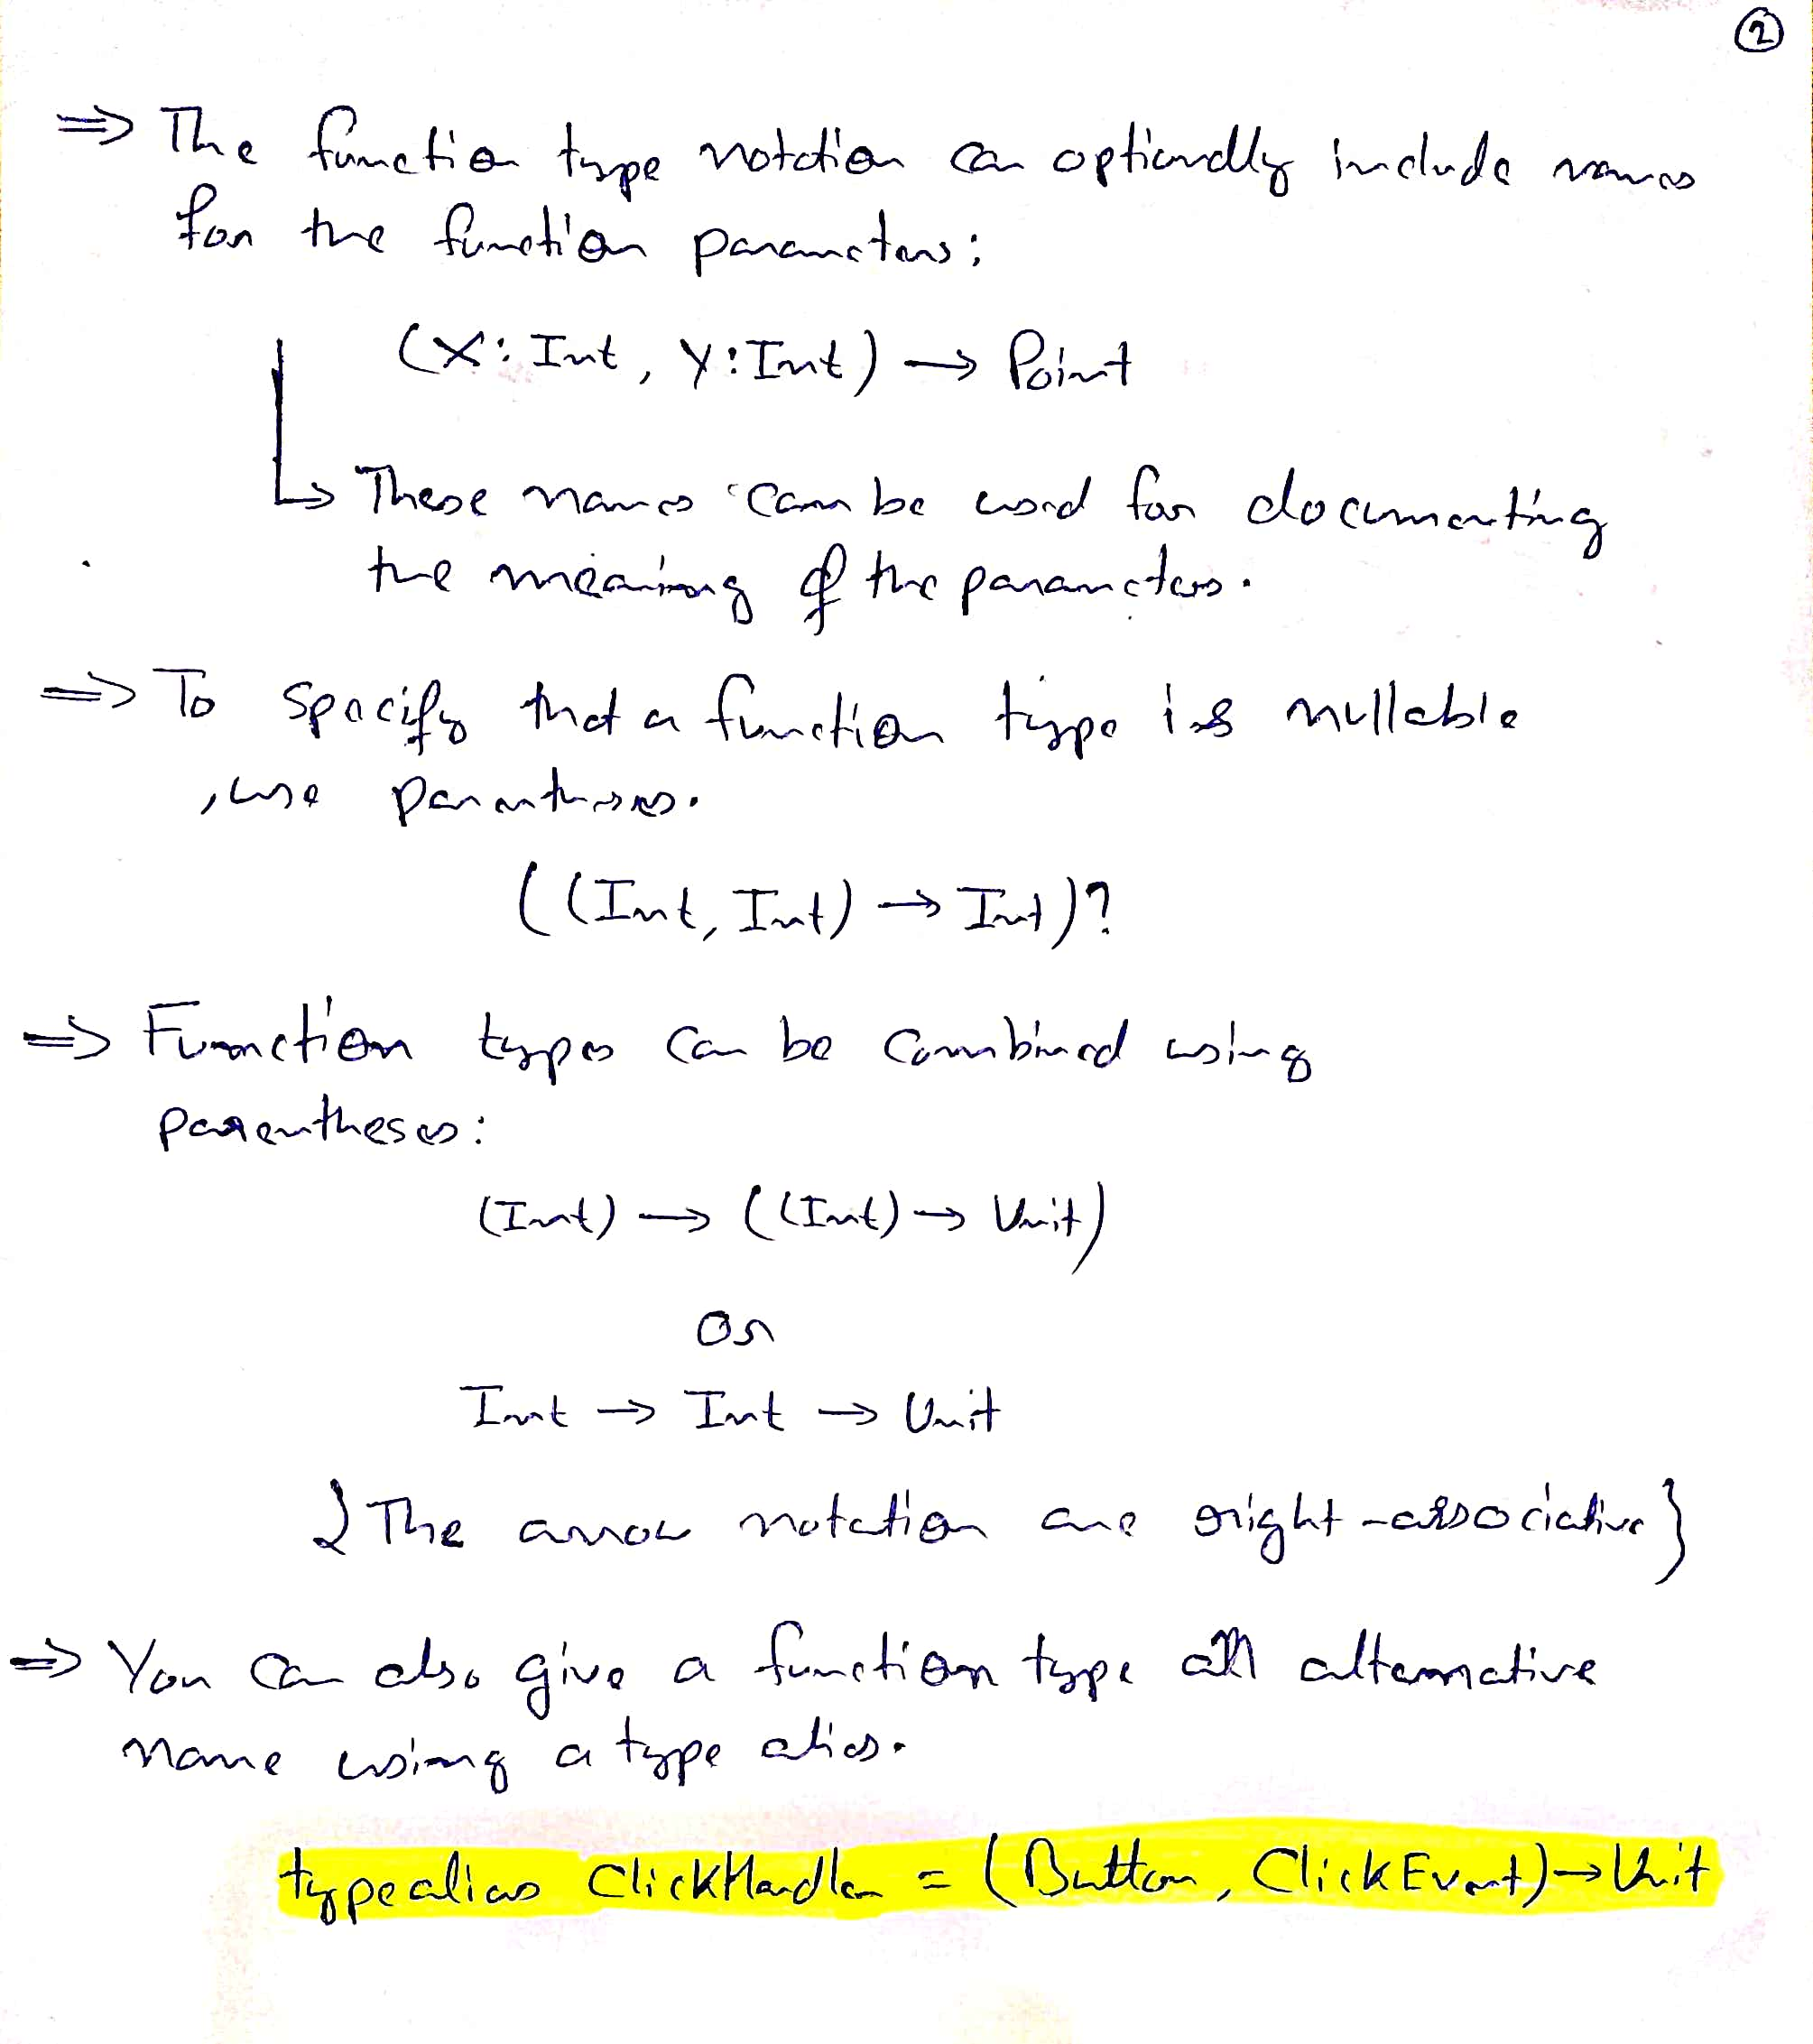 ②
⇒ The function type notation can optionally include names
for the function parameters:
(X: Int, Y: Int) → Point
↳ These names can be used for documenting
the meaning of the parameters.
⇒ To specify that a function type is nullable
, use parentheses.
((Int, Int) → Int)?
⇒ Function types can be combined using
parentheses:
(Int) → ((Int) → Unit)
or
Int → Int → Unit
{The arrow notation are right-associative}
⇒ You can also give a function type an alternative
name using a type alias.
typealias ClickHandler = (Button, ClickEvent) → Unit